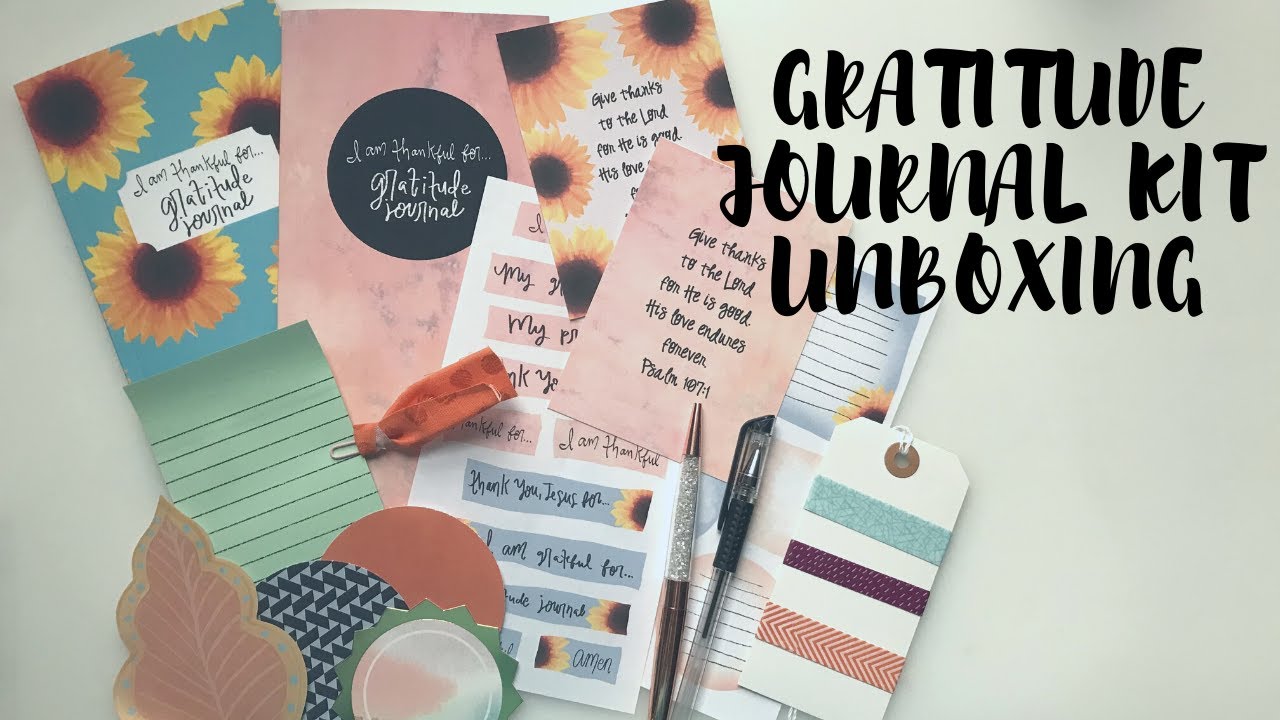 GRATITUDE
JOURNAL KIT
UNBOXING
I am thankful for...
gratitude
journal
I am thankful for...
gratitude
journal
Give thanks
to the Lord
for He is good.
His love
Give thanks
to the Lord
for He is good.
His love endures
forever
Psalm 107:1
I
My
My
for...
I am thankful
Thank You, Jesus for...
I am grateful for...
journal
amen